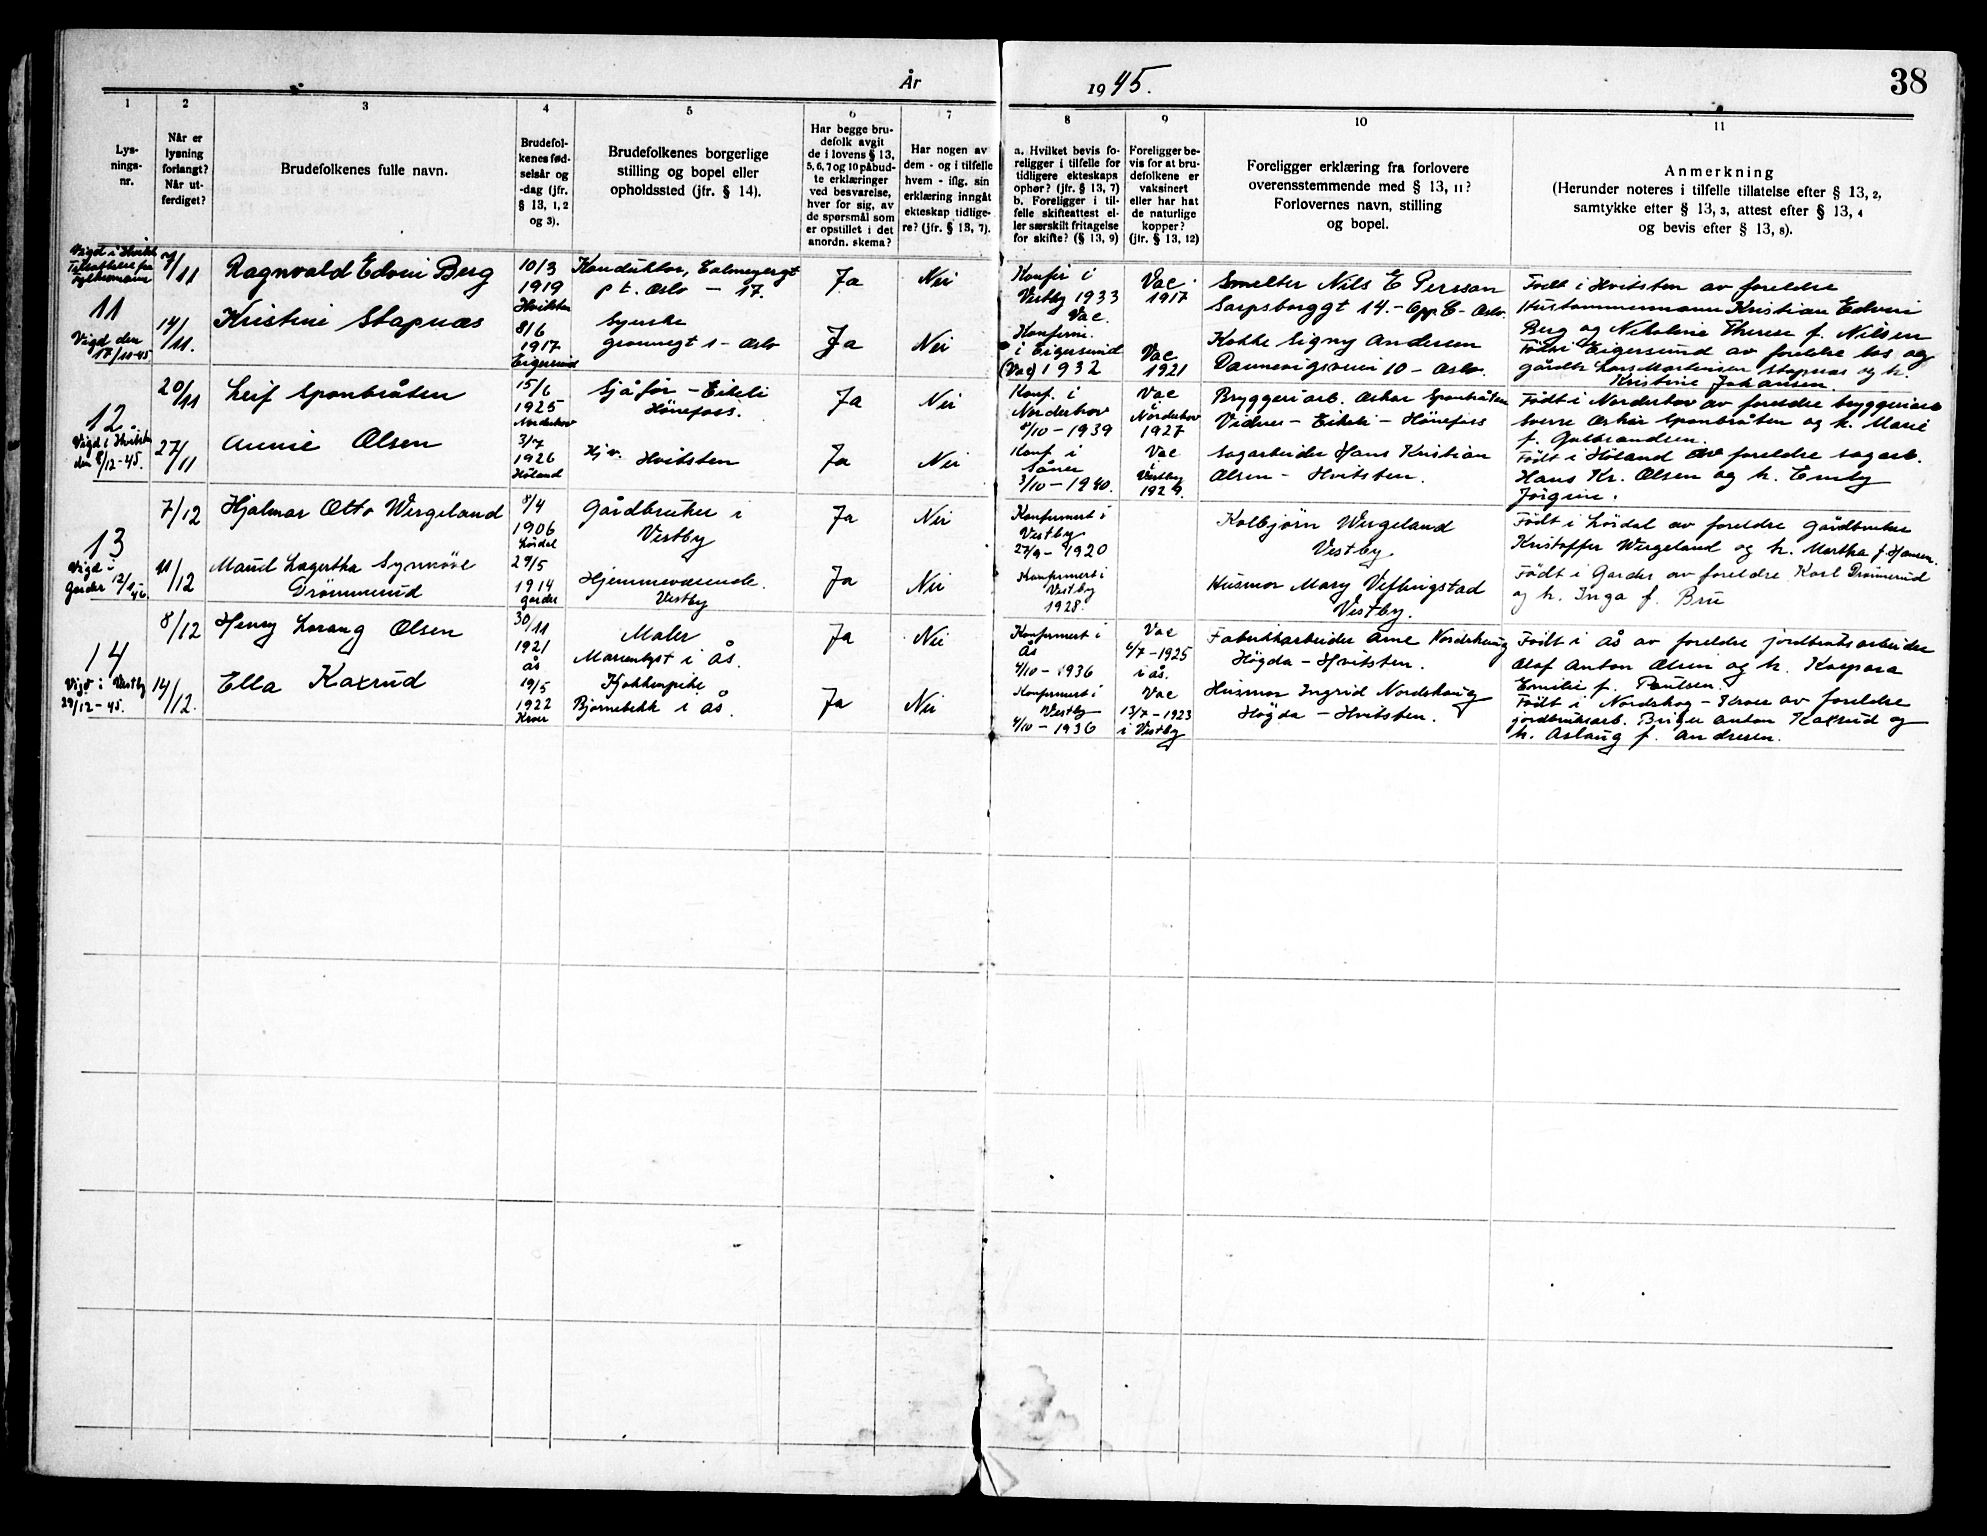 År 1945. 38
1 2 3 4 5 6 7 8 9 10 11
Lys-
nings-
nr.
Når er
lysning
forlangt?
Når ut-
ferdiget?
Brudefolkenes fulle navn.
Brudefol-
kenes fød-
selsår og
-dag (jfr.
§ 13, 1, 2
og 3).
Brudefolkenes borgerlige
stilling og bopel eller
opholdssted (jfr. § 14).
Har begge bru-
defolk avgit
de i lovens § 13,
5, 6, 7 og 10 påbud-
te erklæringer
ved besvarelse,
hver for sig, av
de spørsmål som
er opstillet i det
anordn. skema?
Har nogen av
dem - og i tilfelle
hvem - iflg. sin
erklæring inngåt
ekteskap tidlige-
re? (jfr. § 13, 7).
a. Hvilket bevis fo-
religger i tilfelle for
tidligere ekteskaps
ophør? (jfr. § 13, 7)
b. Foreligger i til-
felle skifteattest el-
ler særskilt fritagelse
for skifte? (§ 13, 9)
Foreligger be-
vis for at bru-
defolkene er
vaksinert
eller har hat
de naturlige
kopper?
(jfr. § 13, 12)
Foreligger erklæring fra forlovere
overensstemmende med § 13, 11?
Forlovernes navn, stilling
og bopel.
Anmerkning
(Herunder noteres i tilfelle tillatelse efter § 13, 2,
samtykke efter § 13, 3, attest efter § 13, 4
og bevis efter § 13, 8).
11
Vigd den
17/11-45
7/11
Ragnvald Edvin Berg
10/3
1919
Hvitsten
Konduktør,
p t. Oslo - 17.
Ja
Nei
Konfir i
Vestby 1933
Vac.
Vac.
1917
Smelter Nils E Persson
Sarpsborggt 14. - Opp. C - Oslo.
Født i Hvitsten av foreldre
Kristian Edvin
Berg og Nikoline Therese f. Nilsen
14/11.
Kristine Stapnæs
8/6
1917
Eigersund
Syerske
Grønnegt 1 - Oslo
Ja
Nei
Konfirm.
i Eigersund
(Vac) 1932
Vac
1921
Kokke Signy Andersen
Dannevigsveien 10 - Oslo.
Født i Eigersund av foreldre los og
gårdbr. Lars Martinsen Stapnæs og h.
Kristine Johansen.
12
Vigd i Hvitsten
den 8/12-45.
20/11
Leif Sponbråten
15/6
1925
Norderhov
Sjåfør - Eikeli
Hønefoss.
Ja
Nei
Konf. i
Norderhov
8/10 - 1939
Vac
i Norderhov
1927
Bryggeriarb. Oskar Sponbråten
Eikeli - Hønefoss
Født i Norderhov av foreldre bryggeriarb
Sverre Oskar Sponbråten og h. Marie
f. Gulbrandsen.
27/11
Annie Olsen
3/7
1926
Høland
Hjv. Hvitsten
Ja
Nei
Konf i
Såner
3/10 - 1940.
Vac
i
Vestby
1929.
Sagarbeider Hans Kristian
Olsen - Hvitsten.
Født i Høland av foreldre sagarb.
Hans Kr. Olsen og h. Emily
Jørgine.
13
Vigd i
Garder
7/12
Hjalmar Otto Wergeland
8/4
1906
Gårdbruker i
Vestby
Ja
Nei
Konfirmert i
Vestby
27/9 - 1920
Kolbjørn Wergeland
Vestby.
Født i av foreldre Gårdbruker
Kristoffer Wergeland og h. Martha f. Hansen.
11/12
Maud Lagertha Synnøve
Drømmerud
29/5
1914
Garder
Hjemmeværende.
Vestby
Ja
Nei
Konfirmert i
Vestby
1928
Husmor Mary Veflingstad
Vestby.
Født i Garder av foreldre Karl Drømmerud
og h. Inga f. Bru
14
Vigd i Vestby
29/12-45.
8/12
Henry Lorang Olsen
30/11
1921
Ås
Maler
Marienlyst i Ås.
Ja
Nei
Konfirmert i
Ås
4/10 - 1936
Vac
6/7 - 1925
i Ås.
Fabrikkarbeider Arne Nordskaug
Høgda - Hvitsten.
Født i Ås av foreldre jordbruksarbeider
Olaf Anton Olsen og h. Kaspara
Emilie f. Paulsen.
14/12.
Ella Kaxrud
19/5
1922
Kroer
Kjøkkenpike
Bjørnebekk i Ås.
Ja
Nei
Konfirmert i
Vestby
4/10 - 1936
Vac
13/7 - 1923
i Vestby
Husmor Ingrid Nordskaug
Høgda - Hvitsten.
Født i Nordskog - Kroer av foreldre
jordbruksarb. Birger Anton Kaxrud og
h. Aslaug f. Andresen.